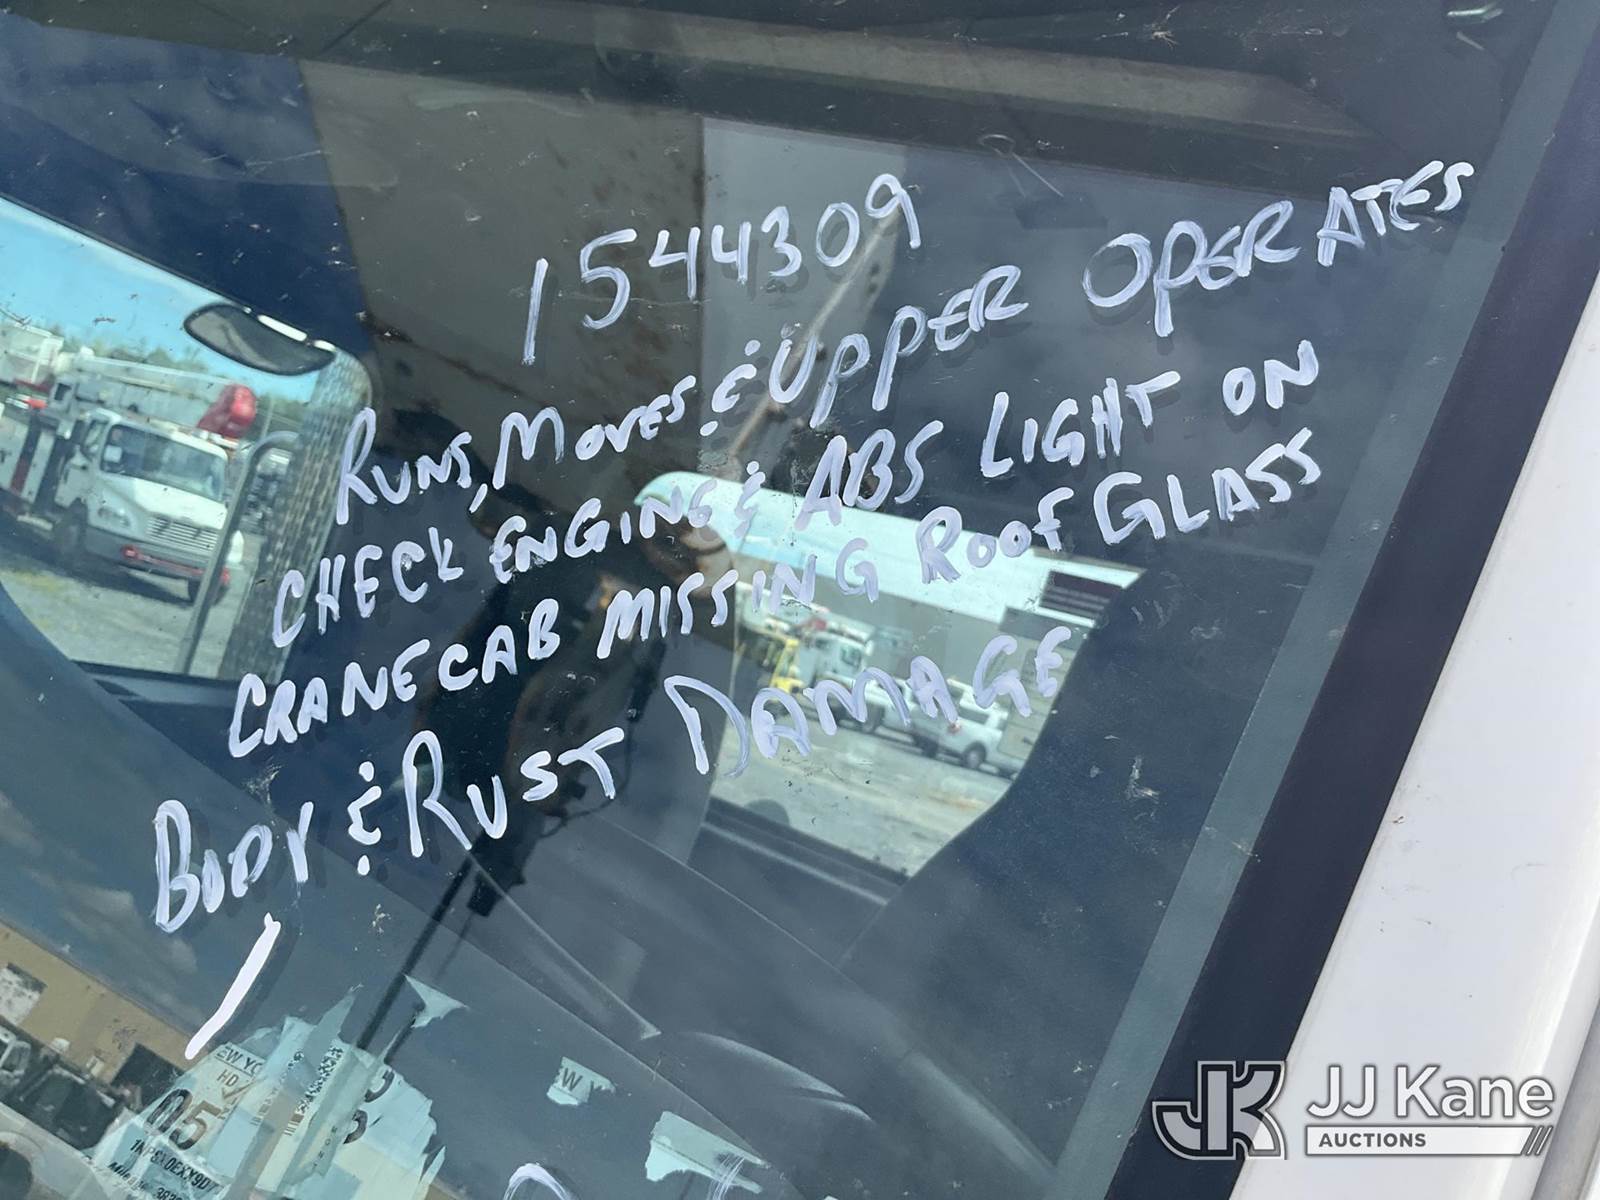 1544309
RUNS, MOVES & UPPER OPERATES
CHECK ENGINE & ABS LIGHT ON
CRANE CAB MISSING ROOF GLASS
BODY & RUST DAMAGE
EW YO
HD
05
EW Y
JK JJ Kane
AUCTIONS